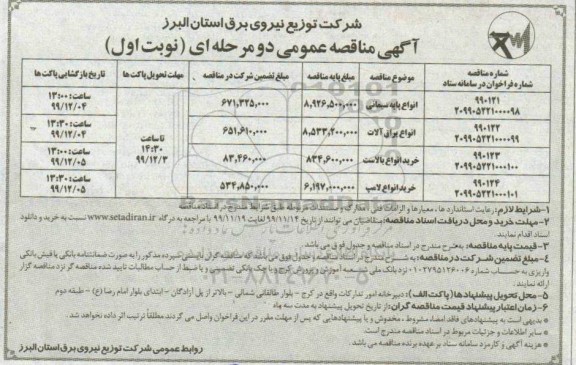 شرکت توزیع نیروی برق استان البرز
آگهی مناقصه عمومی دو مرحله ای (نوبت اول)
شماره مناقصه
شماره فراخوان در سامانه ستاد
موضوع مناقصه
مبلغ پایه مناقصه
مبلغ تضمین شرکت در مناقصه
مهلت تحویل پاکت ها
تاریخ بازگشایی پاکت ها
۹۹۰۱۲۱
۲۰۹۹۰۵۲۲۱۰۰۰۰۹۸
انواع پایه سیمانی
۸,۹۲۶,۵۰۰,۰۰۰
۶۷۱,۳۲۵,۰۰۰
تا ساعت
۱۴:۳۰
۹۹/۱۲/۳
ساعت: ۱۳:۰۰
۹۹/۱۲/۰۴
۹۹۰۱۲۲
۲۰۹۹۰۵۲۲۱۰۰۰۰۹۹
انواع یراق آلات
۸,۵۳۲,۲۰۰,۰۰۰
۶۵۱,۶۱۰,۰۰۰
ساعت: ۱۳:۳۰
۹۹/۱۲/۰۴
۹۹۰۱۲۳
۲۰۹۹۰۵۲۲۱۰۰۰۱۰۰
خرید انواع بالاست
۸۳۴,۶۰۰,۰۰۰
۸۳,۴۶۰,۰۰۰
ساعت: ۱۳:۰۰
۹۹/۱۲/۰۵
۹۹۰۱۲۴
۲۰۹۹۰۵۲۲۱۰۰۰۱۰۱
خرید انواع لامپ
۶,۱۹۷,۰۰۰,۰۰۰
۵۳۴,۸۵۰,۰۰۰
ساعت: ۱۳:۳۰
۹۹/۱۲/۰۵
۱-شرایط لازم: رعایت استاندارد ها، معیارها و الزامات
۲-مهلت خرید و محل دریافت اسناد مناقصه: متقاضیان می توانند از تاریخ ۹۹/۱۱/۱۴ لغایت ۹۹/۱۱/۱۹ با مراجعه به درگاه www.setadiran.ir نسبت به خرید و دانلود
اسناد اقدام نمایند.
۳-قیمت پایه مناقصه: به شرح مندرج در اسناد مناقصه و جدول فوق می باشد.
۴-مبلغ تضمین شرکت در مناقصه: به شرح مندرج در اسناد مناقصه و جدول فوق می باشد که مناقصه گران بایستی سپرده مذکور را به صورت ضمانتنامه بانکی یا فیش بانکی
واریزی به حساب شماره ۰۱۰۲۷۹۵۱۲۶۰۰۶ نزد بانک ملی شعبه آموزش و پرورش کرج و یا چک بانکی تضمینی و یا ضبط از حساب مطالبات تایید شده مناقصه گر نزد مناقصه گزار
ارائه نمایند.
۵-محل تحویل پیشنهادها (پاکت الف): دبیرخانه امور تدارکات واقع در کرج - بلوار طالقانی شمالی - بالاتر از پل آزادگان - ابتدای بلوار امام رضا (ع) - طبقه دوم
۶-زمان اعتبار پیشنهاد قیمت مناقصه گران: از تاریخ تحویل پیشنهاد به مدت سه ماه
* بدیهی است به پیشنهادهای فاقد امضاء، مشروط، مخدوش و یا پیشنهادهایی که پس از مهلت مقرر در این فراخوان واصل می گردند مطلقا ترتیب اثر داده نخواهد شد.
* سایر اطلاعات و جزئیات مربوط در اسناد مناقصه مندرج است.
* هزینه آگهی و کارمزد سامانه ستاد بر عهده برنده مناقصه می باشد.
روابط عمومی شرکت توزیع نیروی برق استان البرز